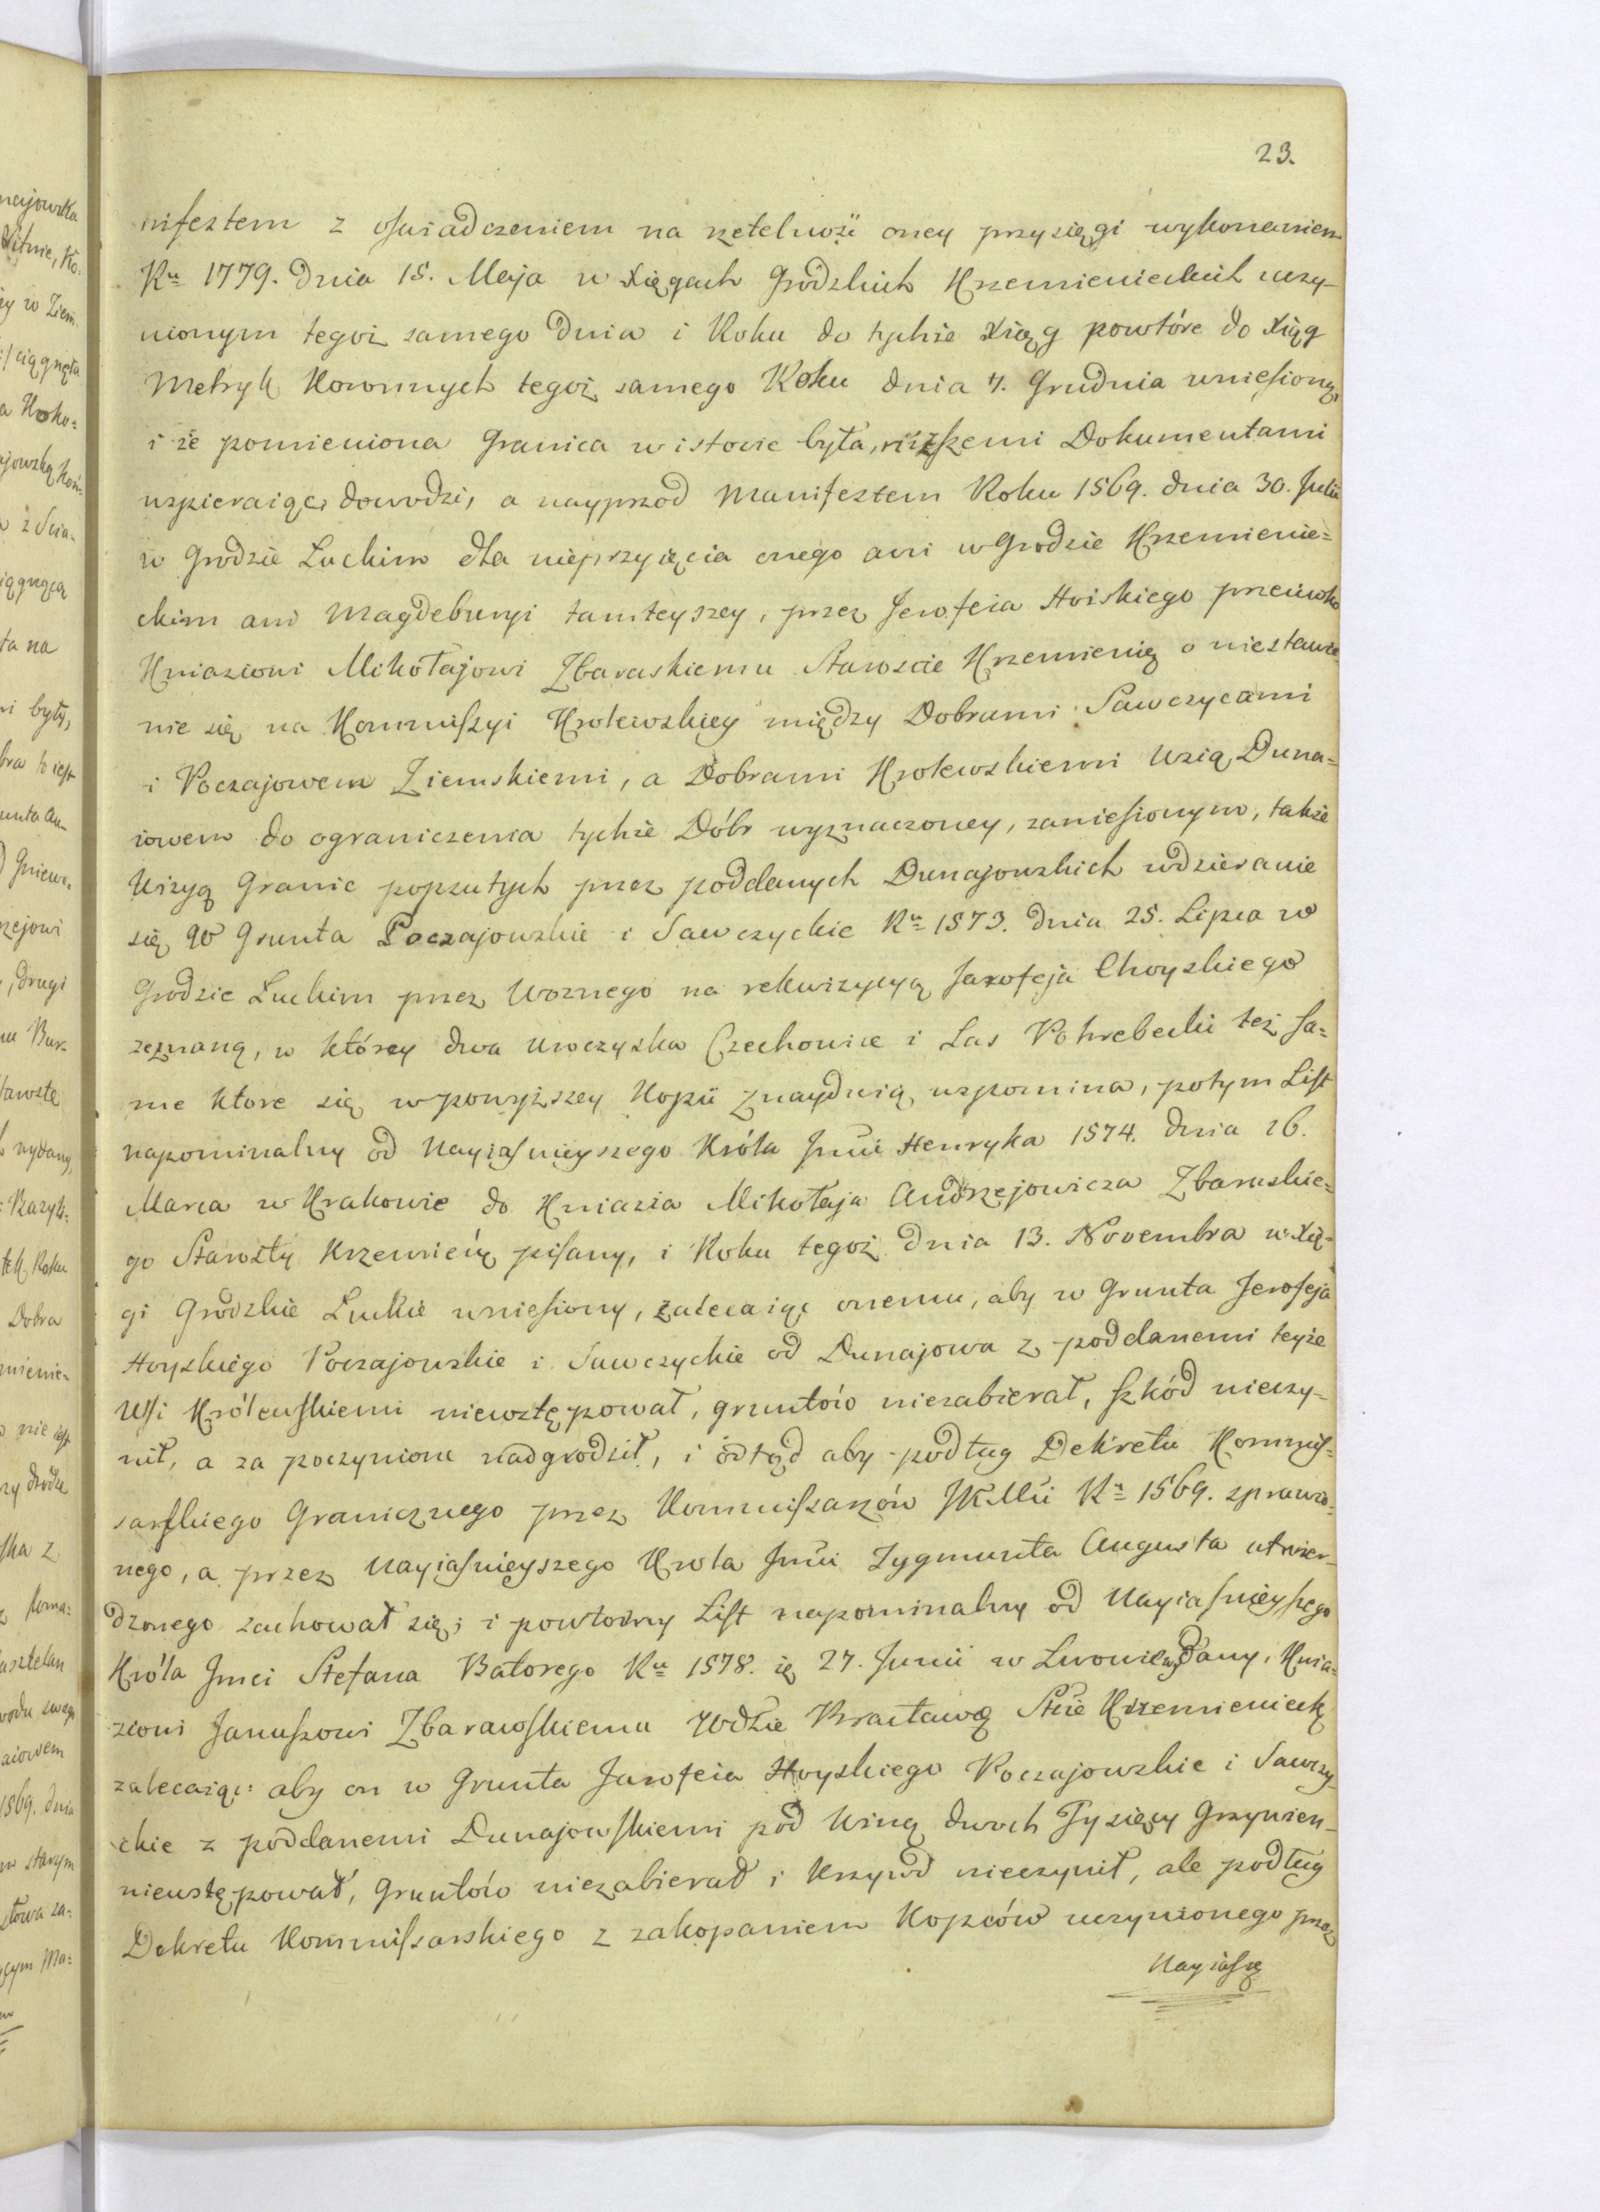 23.
nifestem z oświadczeniem na rzetelność oney przysięgi wykonaniem
Ru 1779. dnia 15. Maja w Xięgach Grodzkich Krzemienieckich uczy-
nionym tegoż samego dnia i Roku do tychże Xiąg powtóre do Xiąg
Metryk Koronnych tegoż samego Roku dnia 7. Grudnia wniesioną,
i że pomieniona Granica w istocie była, niższemi Dokumentami
wspieraiąc, dowodzi, a nayprzod Manifestem Roku 1569. dnia 30. Julii
w Grodzie Łuckim dla nieprzyięcia onego ani w Grodzie Krzemienie=
ckim ani Magdeburyi tamteyszey, przez Jerofeia Hoiskiego przeciwko
Kniaziowi Mikołajowi Zbaraskiemu Staroscie Krzemienię o niestawie-
nie się na Kommissyi Krolewskiey między Dobrami Sawczycami
i Poczajowem Ziemskiemi, a Dobrami Krolewskiemi Wsią Duna=
iowem do ograniczenia tychże Dóbr wyznaczoney, zaniesionym, także
Wizyą Granic popsutych przez poddanych Dunajowskich wdzieranie
się w Grunta Poczajowskie i Sawczyckie Ru 1573. dnia 25. Lipca w
Grodzie Łuckim przez Woznego na rekwizycyą Jarofeja Choyskiego
zeznaną, w którey dwa Uroczyska Czechowice i Las Pohrebecki też sa=
me ktore się w powyższey Kopii znayduią wspomina, potym List
napominalny od Nayiaśnieyszego Króla Jmci Henryka 1574. dnia 26.
Marca w Krakowie do Kniazia Mikołaja Andrzejowicza Zbaraskie=
go Starosty Krzemienię pisany, i Roku tegoż dnia 13. Novembra w Xię-
gi Grodzkie Łuckie wniesiony, zalecaiąc onemu, aby w Grunta Jerofeja
Hoyskiego Poczajowskie i Sawczyckie od Dunajowa z poddanemi teyże
Wsi Królewskiemi niewstępował, gruntów niezabierał, szkód nieczy-
nił, a za poczynione nadgrodził, i odtąd aby podług Dekretu Kommis-
sarskiego Granicznego przez Kommissarzów JKMci Ru 1569. sprawio-
nego, a przez Nayiaśnieyszego Krola Jmci Zygmunta Augusta utwier-
dzonego zachował się; i powtorny List napominalny od Nayiaśnieyszego
Króla Jmci Stefana Batorego Ru 1578. 27. Junii w Lwowie wydany, Knia-
ziowi Januszowi Zbarawskiemu Wdzie Bracławę Stcie Krzemienieck
zalecaiąc: aby on w Grunta Jarofeia Hoyskiego Poczajowskie i Sawczy-
ckie z poddanemi Dunajowskiemi pod Winą dwoch Tysięcy Grzywien
niewstępował, Gruntów niezabierał i Krzywd nieczynił, ale podług
Dekretu Kommissarskiego z zakopaniem Kopców uczynionego przez
Nayiaśnę